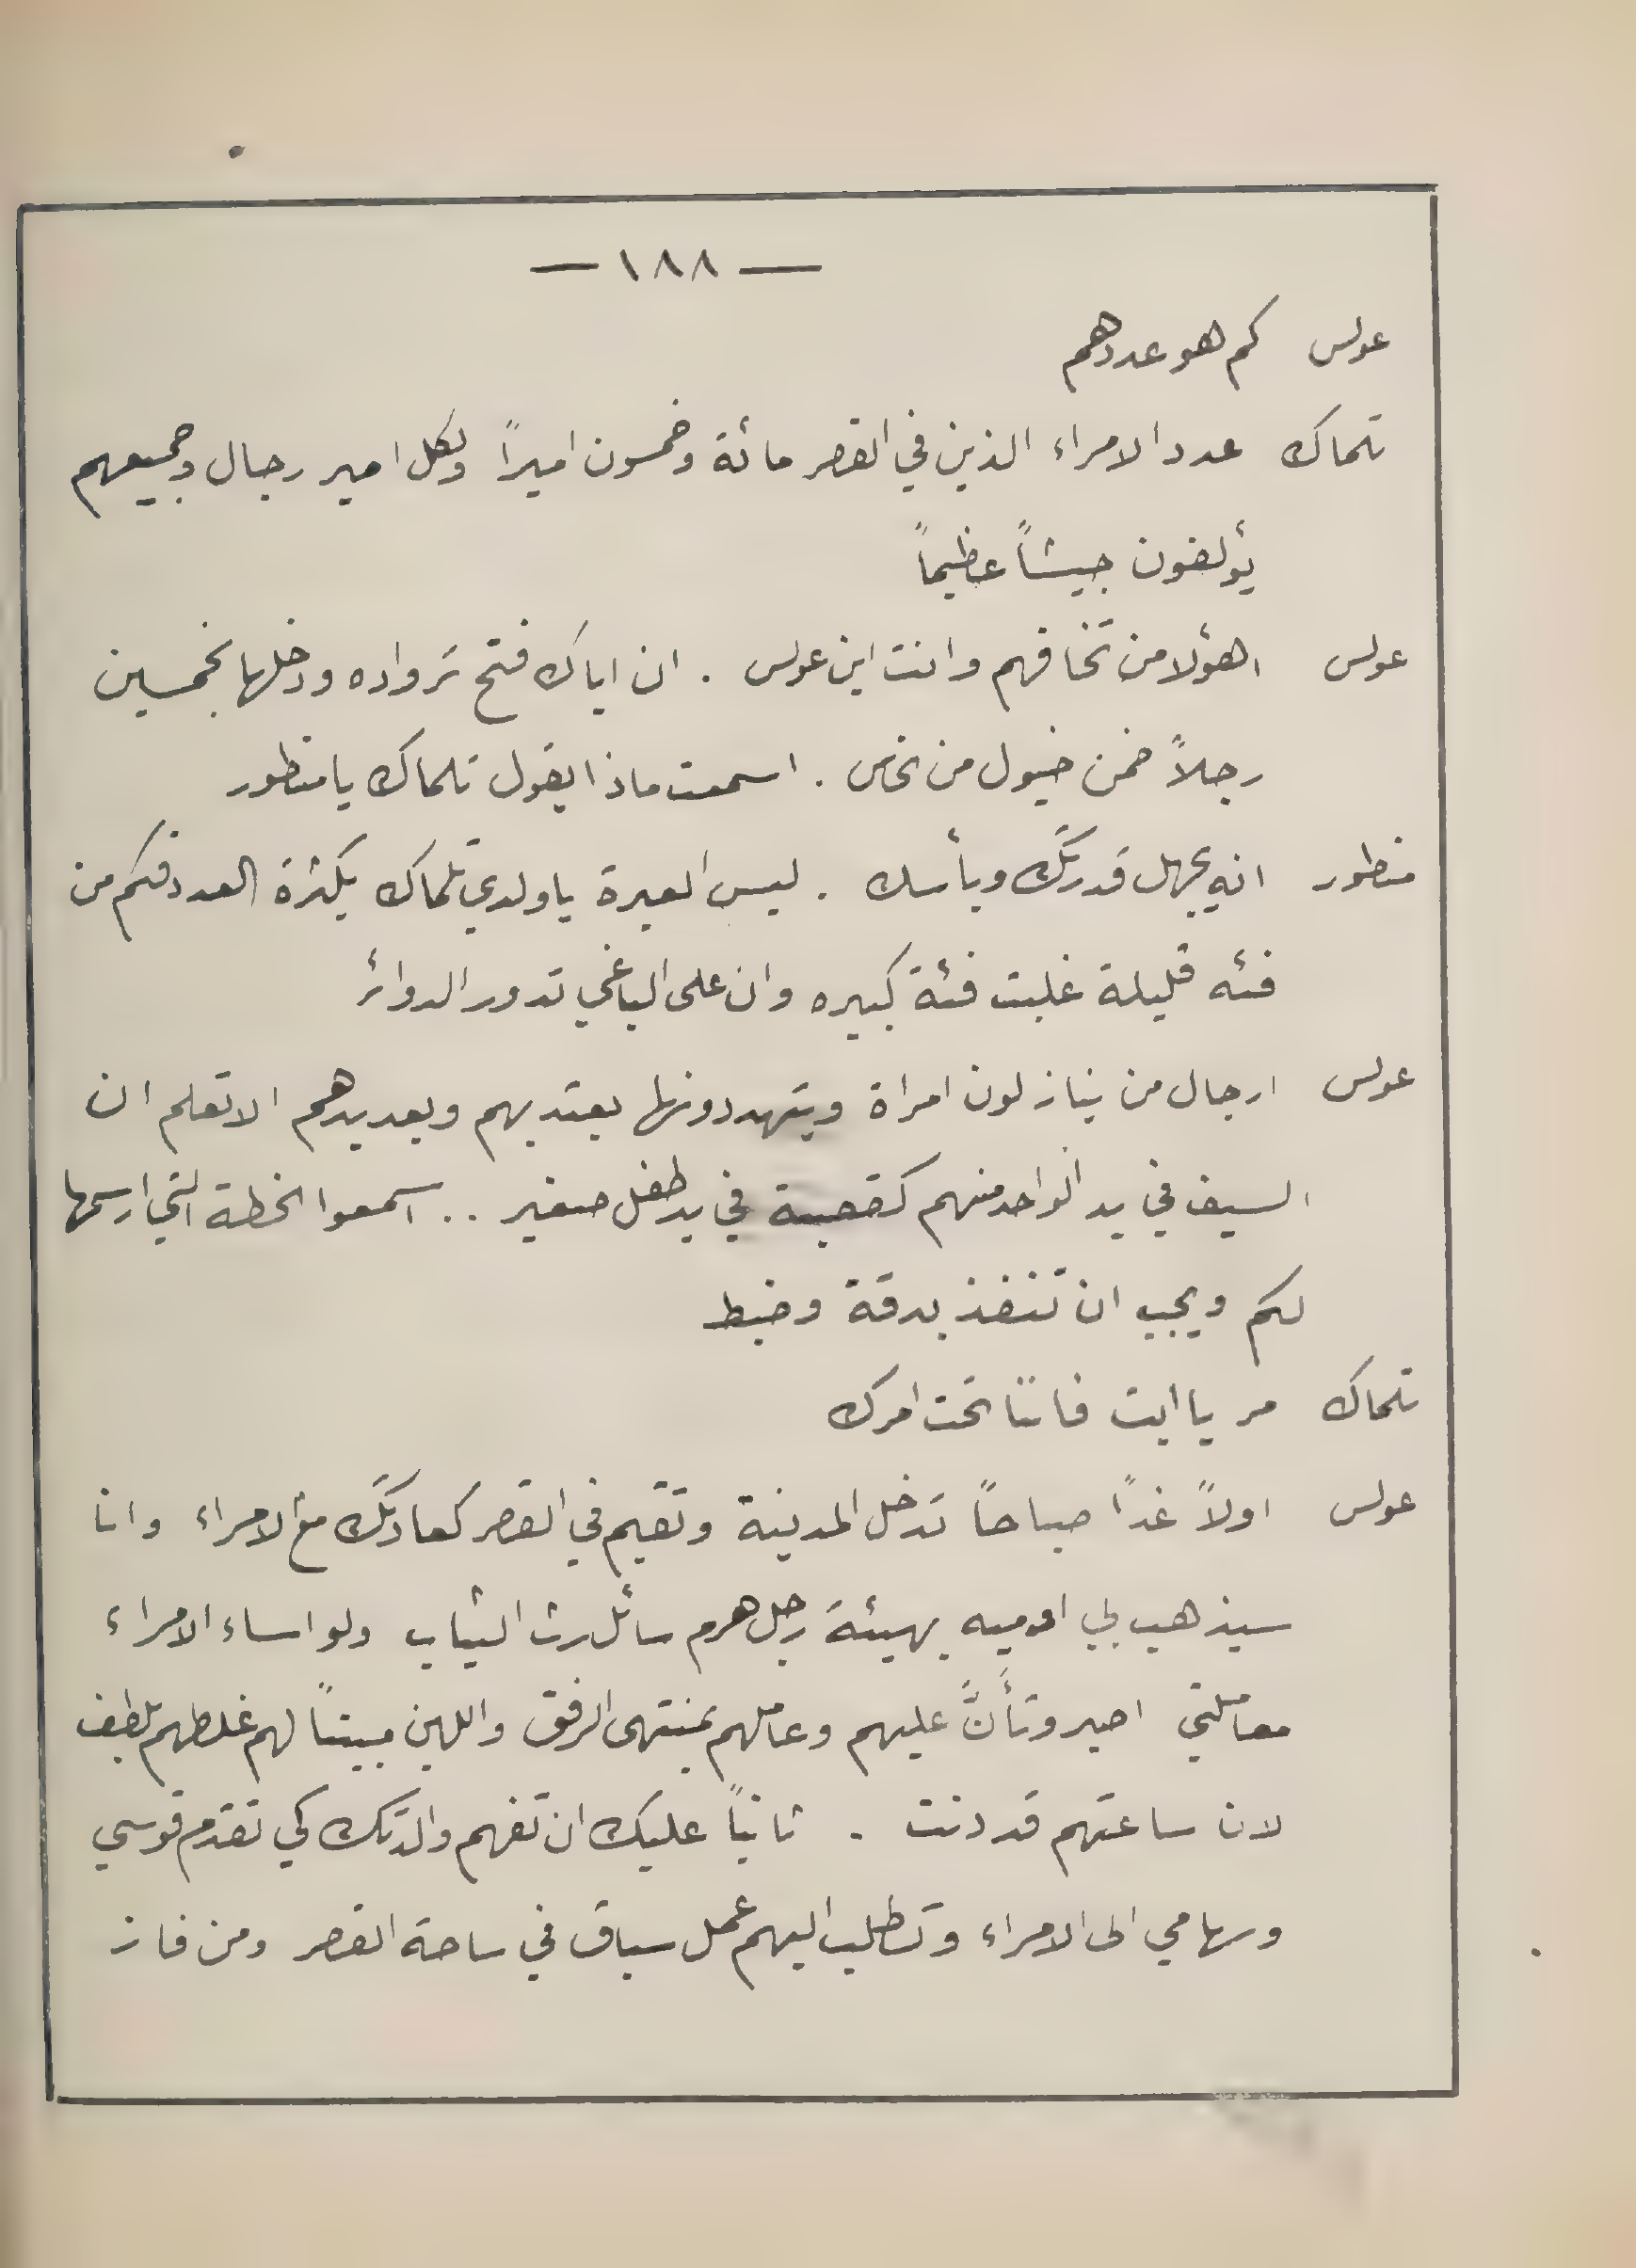 — ١٨٨ —
عولس كم هو عددهم
تلماك عدد الامراء الذين في القصر مائة وخمسون اميراً ولكل امير رجال وجميعهم
يؤلفون جيشاً عظيماً
عولس اهؤلا من تخافهم وانت ابن عولس . ان اباك فتح ترواده ودخلها بخمسين
رجلاً ضمن خيول من نحاس . اسمعت ماذا يقول تلماك يا منطور
منطور انه يجهل قدرتك وبأسك . ليس العبرة يا ولدي تلماك بكثرة العدد فكم من
فئه قليلة غلبت فئة كبيره وان على الباغي تدور الدوائر
عولس ارجال من ينازلون امراة ويتهددونها بعتديهم وبعديدهم الا تعلم ان
السيف في يد الواحد منهم كقصبة في يد طفل صغير .. اسمعوا الخطة التي ارسمها
لكم ويجب ان تنفذ بدقة وضبط
تلماك مر يا ابت فاننا تحت امرك
عولس اولاً غداً صباحاً تدخل المدينة وتقيم في القصر كعادتك مع الامراء وانا
سيذهب بي اوميه بهيئة رجل هرم سائل رث الثياب ولو اساء الامراء
معاملتي اصبر وتأنَّ عليهم وعاملهم بمنتهى الرفق واللين مبيناً لهم غلطهم بلطف
لان ساعتهم قد دنت . ثانياً عليك ان تفهم والدتك كي تقدم قوسي
وسهامي الى الامراء وتطلب اليهم عمل سباق في ساحة القصر ومن فاز